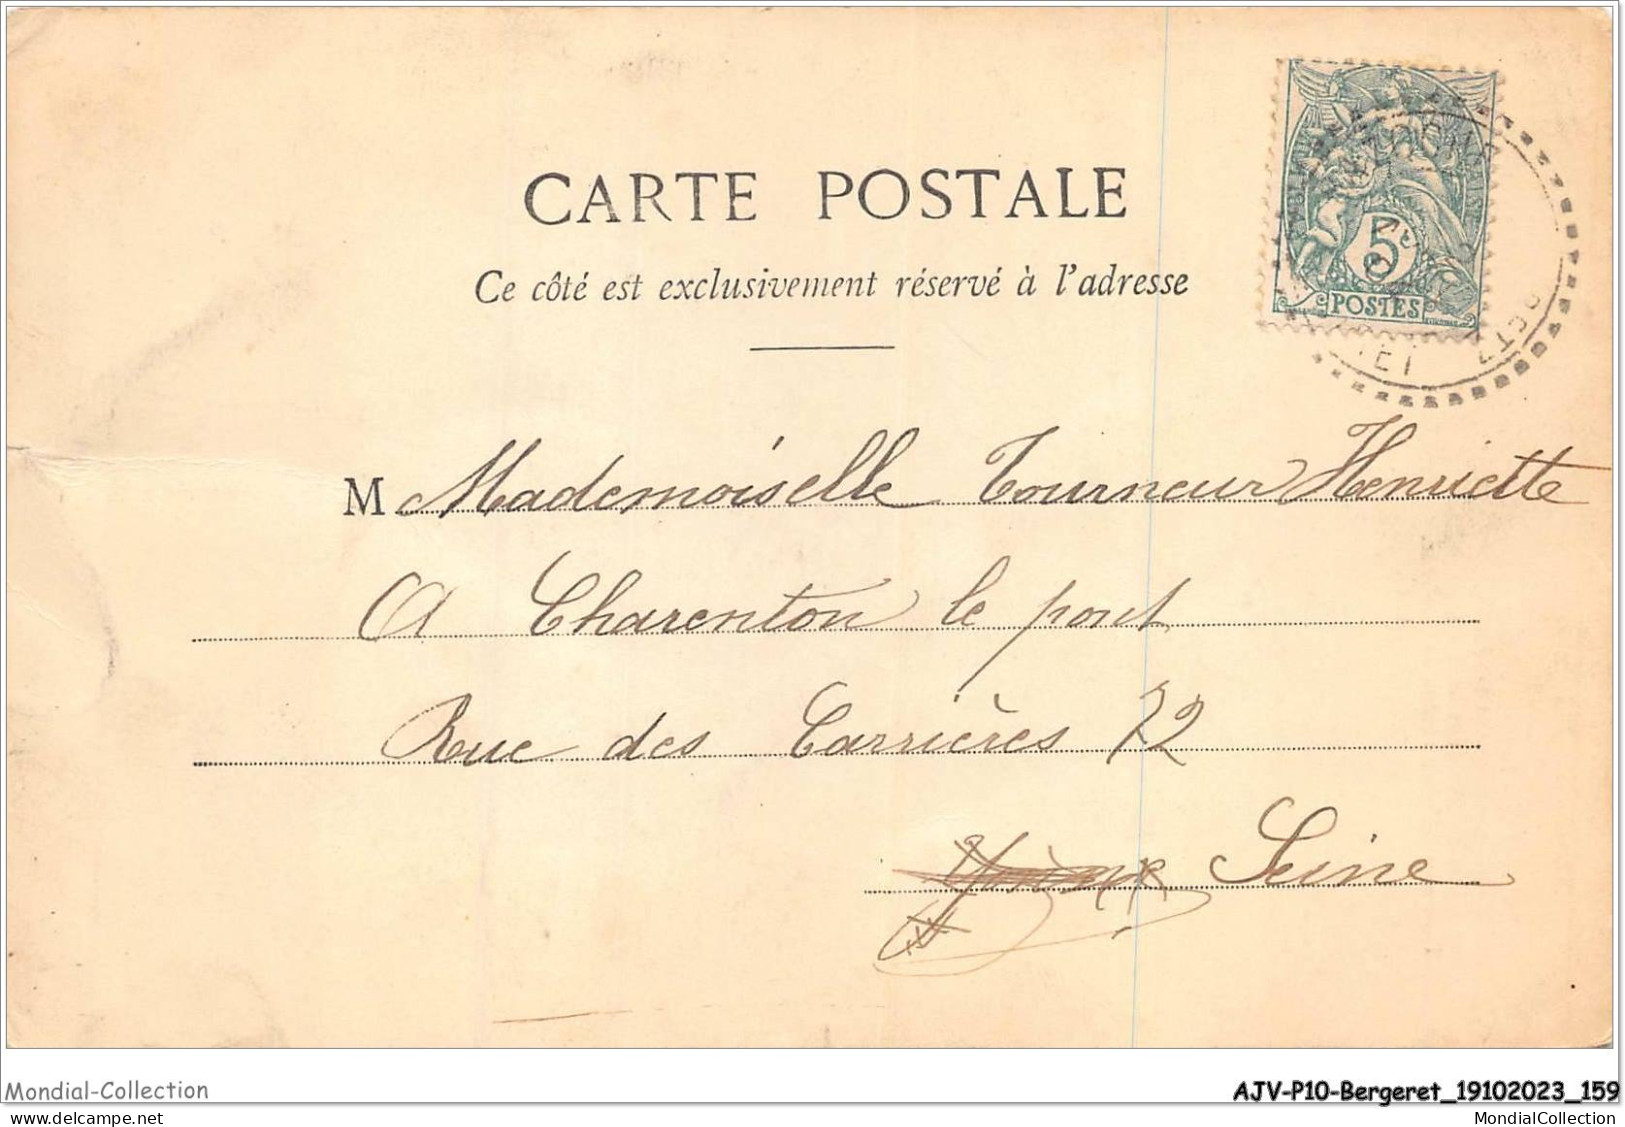 CARTE POSTALE
Ce côté est exclusivement réservé à l'adresse
5
POSTES
M Mademoiselle Tourneur Henriette
A Charenton le pont
Rue des Carrières 72
Seine
Mondial-Collection
AJV-P10-Bergeret_19102023_159
MondialCollection